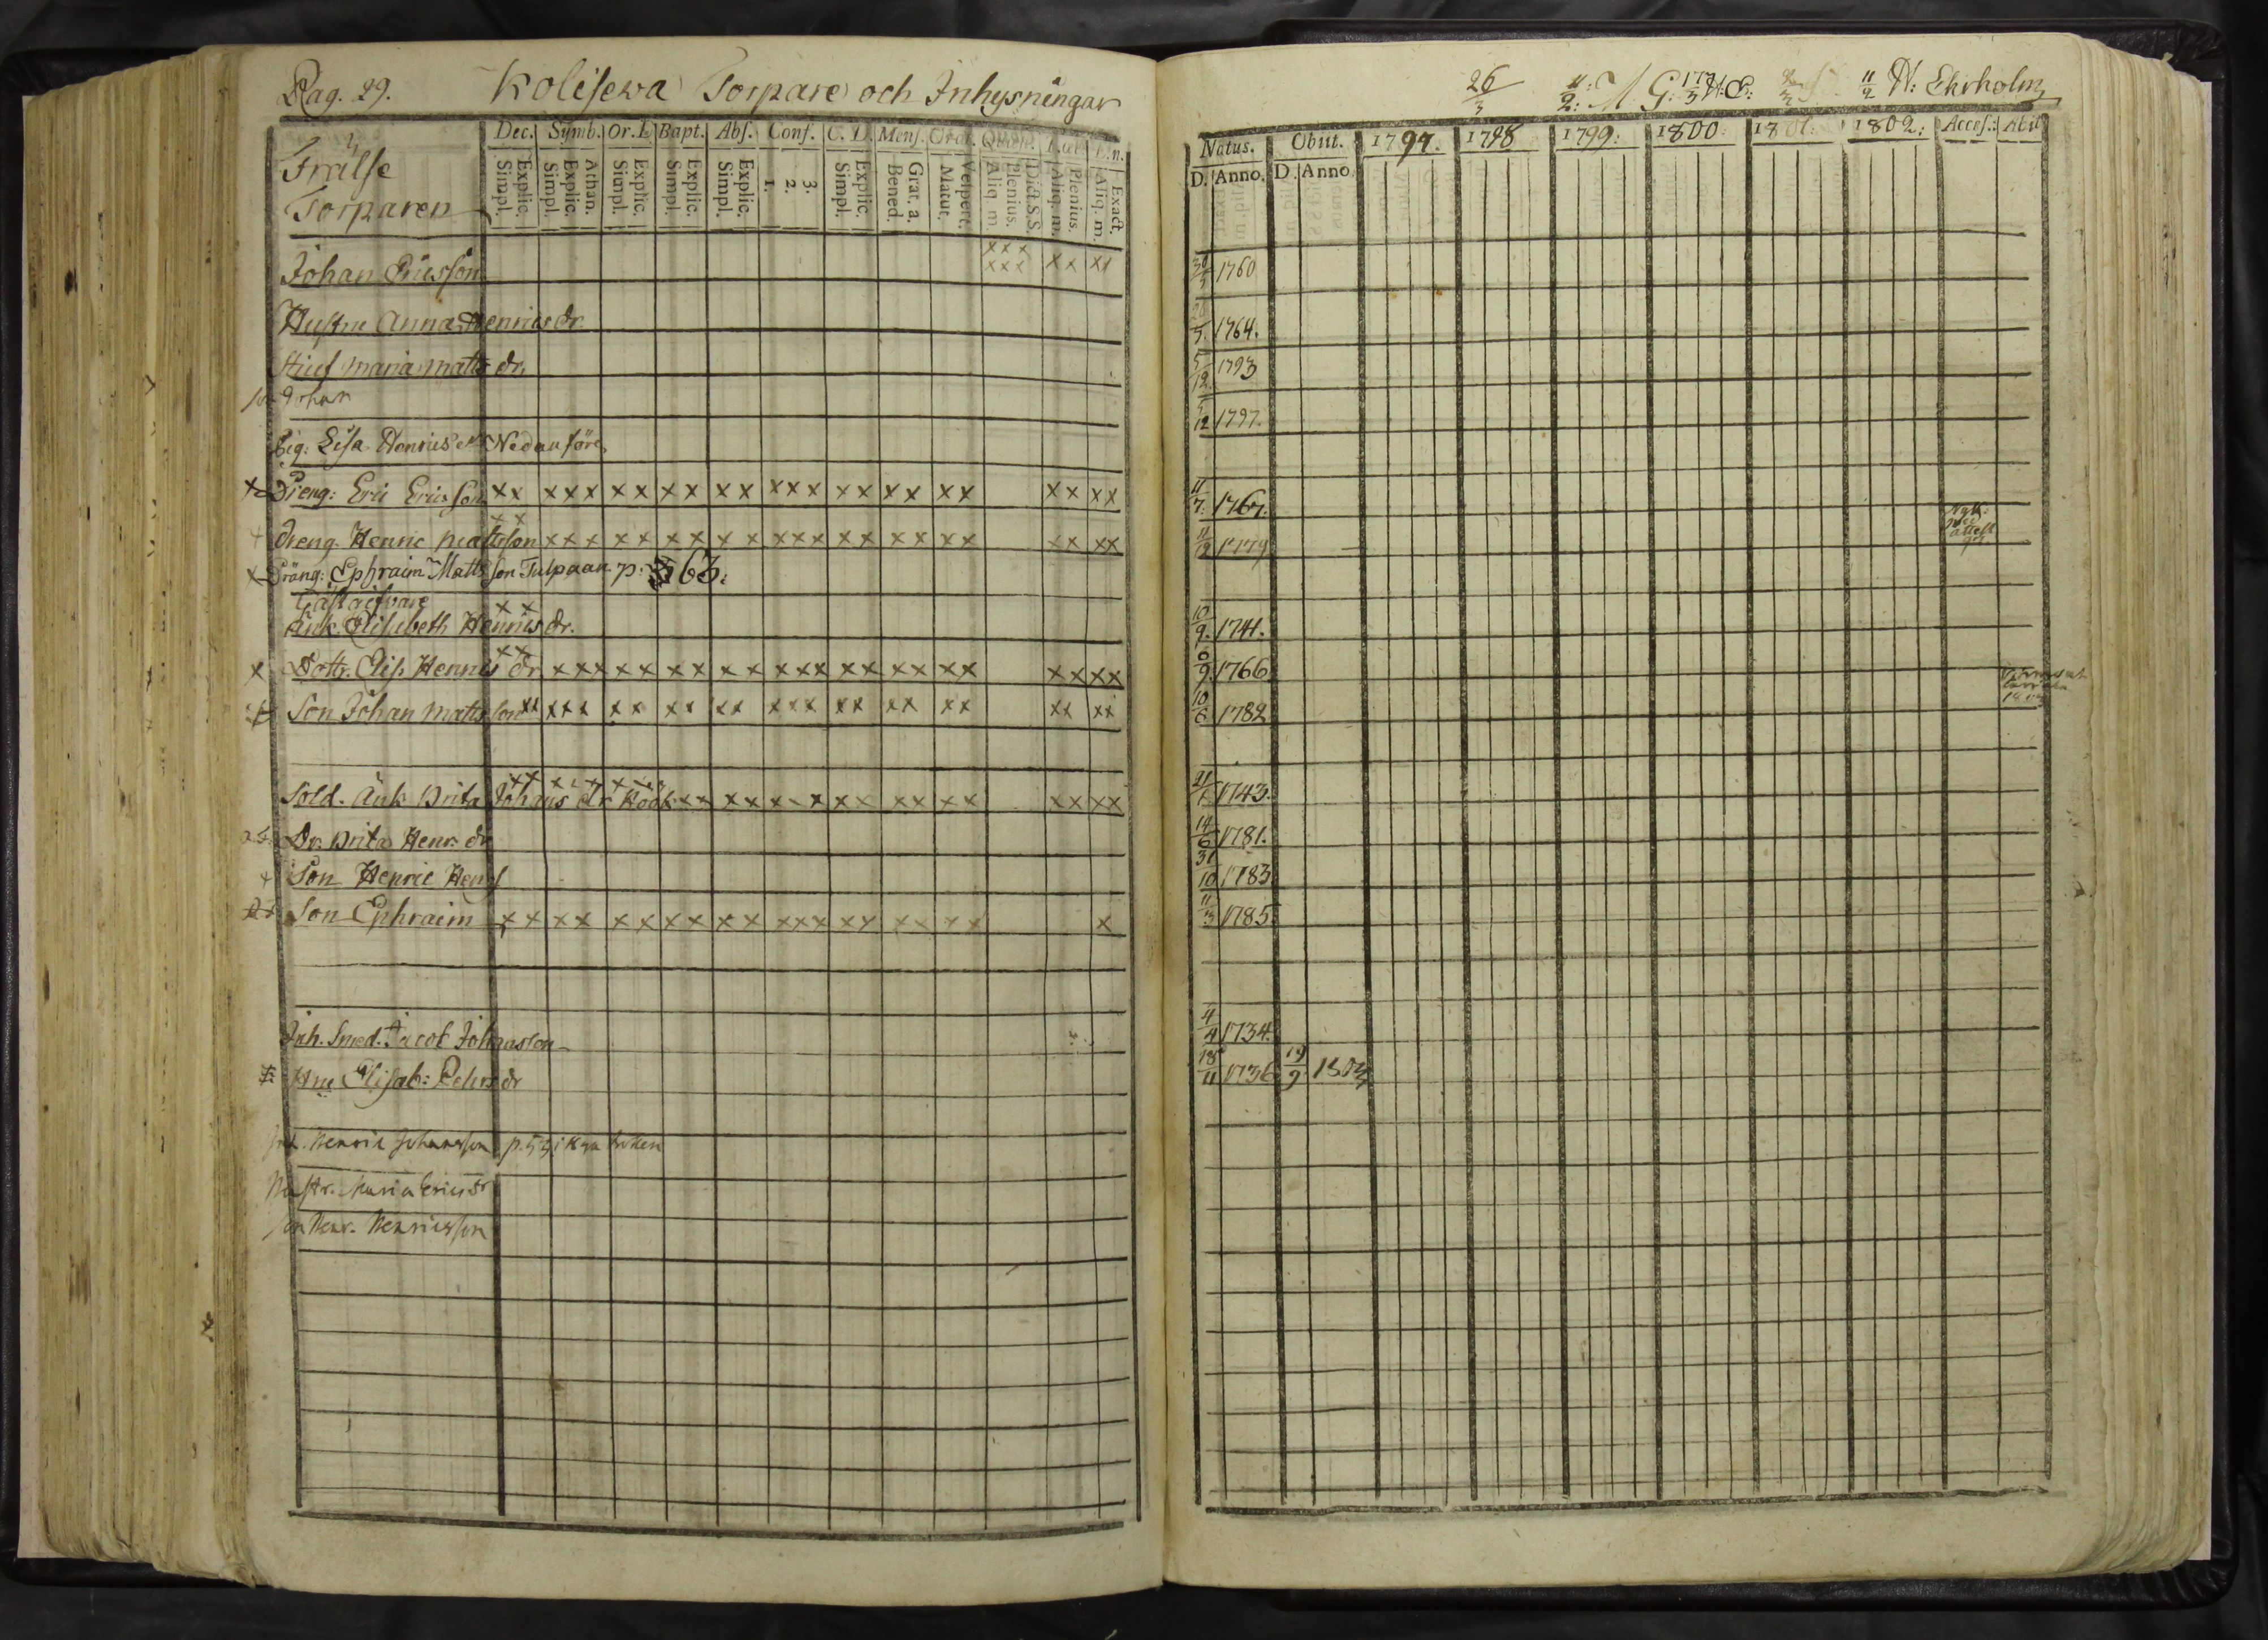 Pag. 29. Kolisewa Torpare och Inhysningar
Dec. Symb. Or. D. Bapt. Abs. Conf. C. D. Mens. Orat.
Explic. Simpl. Athan. Explic. Simpl. Explic. Simpl. Explic. Simpl. Explic. Simpl. 3. 2. 1. Explic. Simpl. Grat. a. Bened. Vespert. Matut. Dict. S.S. Plenius. Aliq. m. Plenius. Aliq. m. Exact. Aliq. m.
Frälse
Torparen
Johan Ericsson xxx xxx xx xx
Hustru Anna Henricsdr
Stiuf Maria Mattsdr
Johan
Pig: Lisa Henricsdr Nedanföre
x Dreng: Eric Ericsson xx xxx xx xx xx xxx xx xx xx xx xx
+ Dreng Henric Mattsson xx xxx xx xx xx xxx xx xx xx xx xx
x Dräng: Ephraim Mattsson Tulpaan p: 363.
Gästgifvare
Änk. Elisabeth Henricsdr. xx
x Dottr. Elis. Henricsdr xx xxx xx xx xx xxx xx xx xx xx xx
Son Johan Mattsson xx xxx xx xx xx xxx xx xx xx xx xx
Sold. Änk Brita Johansdr Röök xx xxx xxx xx xx xxx xx xx xx xx xx
Dr. Brita Henr. dr
+ Son Henric Henrs
Son Ephraim xx xx xx xx xx xxx xx xx xx x
Inh. Smed. Jacob Johansson
Hru Elisab: Pehrsdr
Henric Johansson p.
Hustr. Maria Ericsdr
Son Henr. Henricsson
26/3 11/2: M. G. 17/3 11/2 N: Ehrholm
Natus. Obiit. 1797. 1798 1799: 1800: 1801: 1802: Acces.: Abit
D. Anno. D. Anno
1760
1764.
5/12 1793
5/12 1797.
11/7. 1767.
11/12 1779
10/9. 1741.
6/9 1766
10/6 1782
21/1 1743.
14/6 1781.
31/10 1783
11/3 1785.
4/4 1734.
18/11 1736 19/9 1803